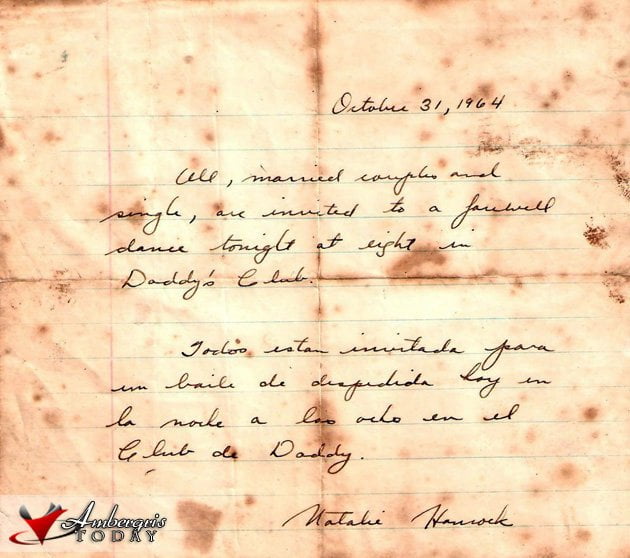 October 31, 1964
All, married couples and
single, are invited to a farewell
dance tonight at eight in
Daddy's Club.
Todos estan invitada para
un baile de despedida hoy en
la noche a las ocho en el
Club de Daddy.
Natalie Hancock
Ambergris
TODAY